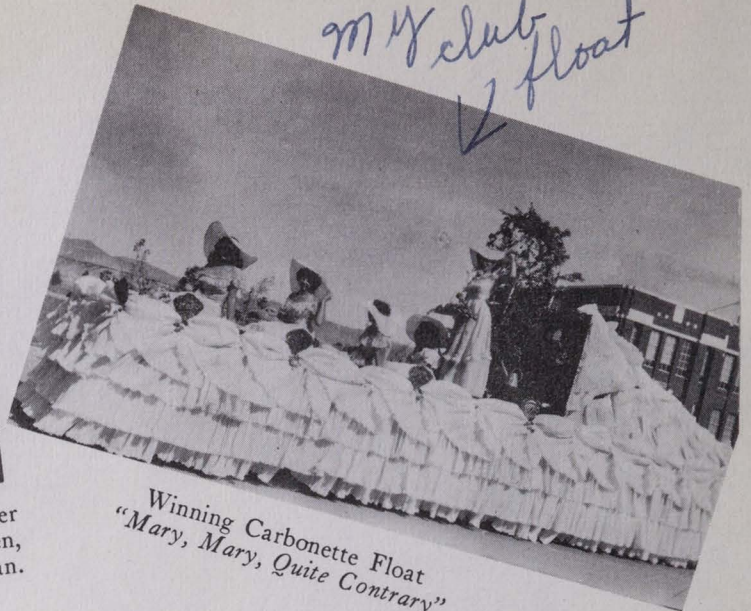 My club
float
er
en,
an.
Winning Carbonette Float
"Mary, Mary, Quite Contrary"